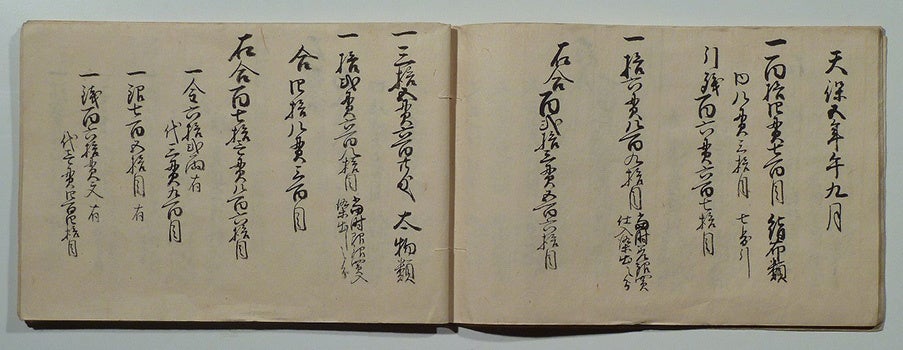 天保五年午九月
一百拾四貫七百目 絹布類
内八貫三拾目 七歩引
引残百六貫六百七拾目
一拾六貫八百九拾目
仕入染出し之分
右合百弐拾三貫五百六拾目
一三拾五貫六百卅目 太物類
一拾弐貫六百七拾目
染出し之分
合四拾八貫三百目
右合百七拾壱貫八百六拾目
一金六拾弐両有
代三貫九百目
一銀七百五拾目 有
一銭百六拾貫文 有
代壱貫四百四拾目